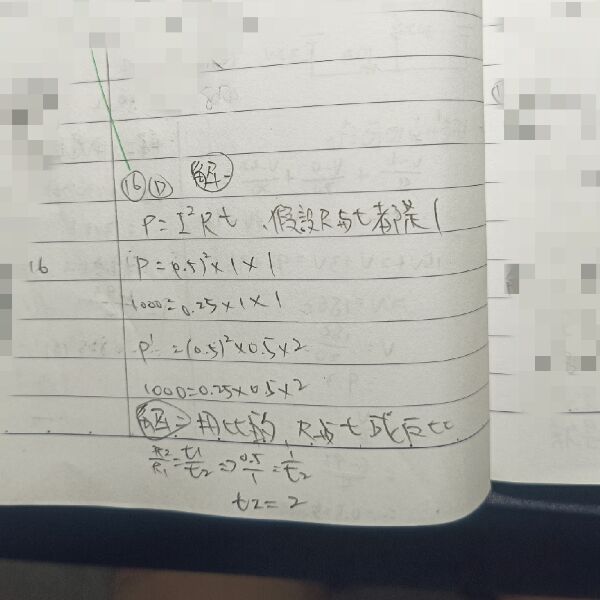 16 (D) 解一
P=I²Rt、假設R與t都是1
16
P=(0.5)²×1×1
1000=0.25×1×1
P'=(0.5)²×0.5×2
1000=0.25×0.5×2
解二 用比的、R與t成反比
R2/R1=t1/t2⇒0.5/1=1/t2
t2=2